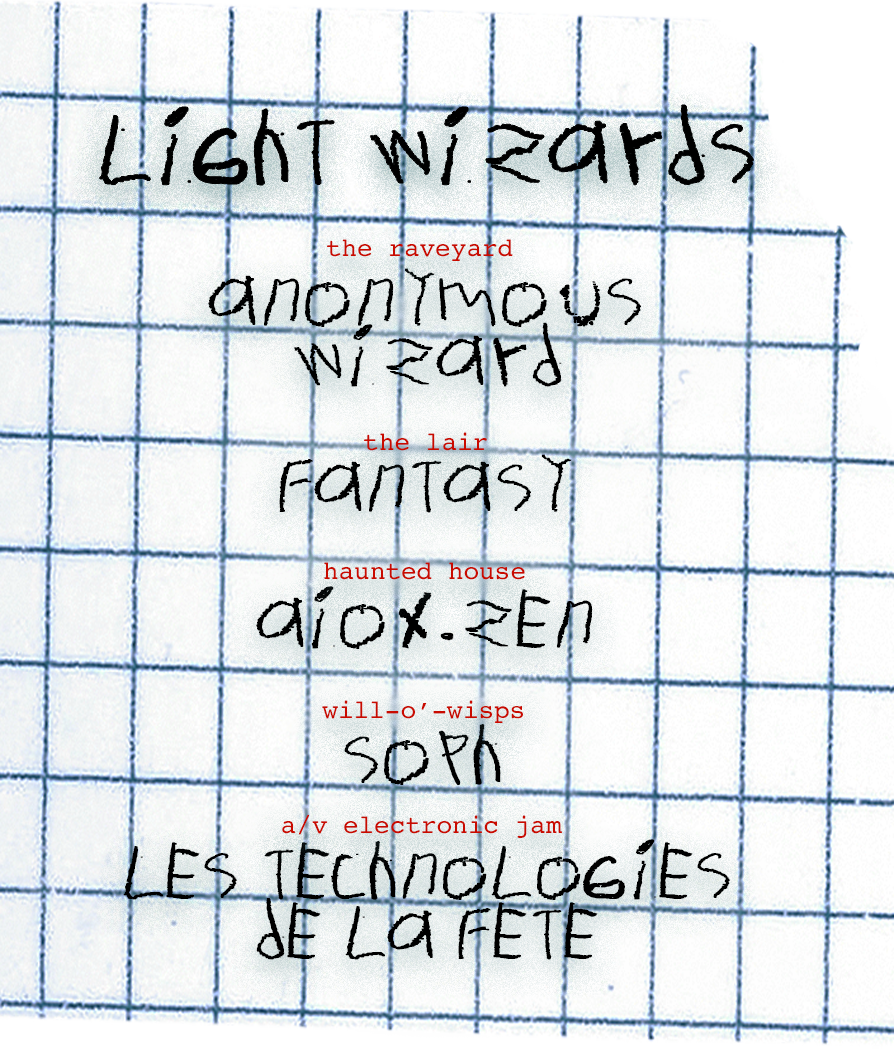 Light wizards
the raveyard
anonymous
wizard
the lair
Fantasy
haunted house
aiox.zEn
will-o’-wisps
soph
a/v electronic jam
LES TEchnoLoGiES
dE La FETE